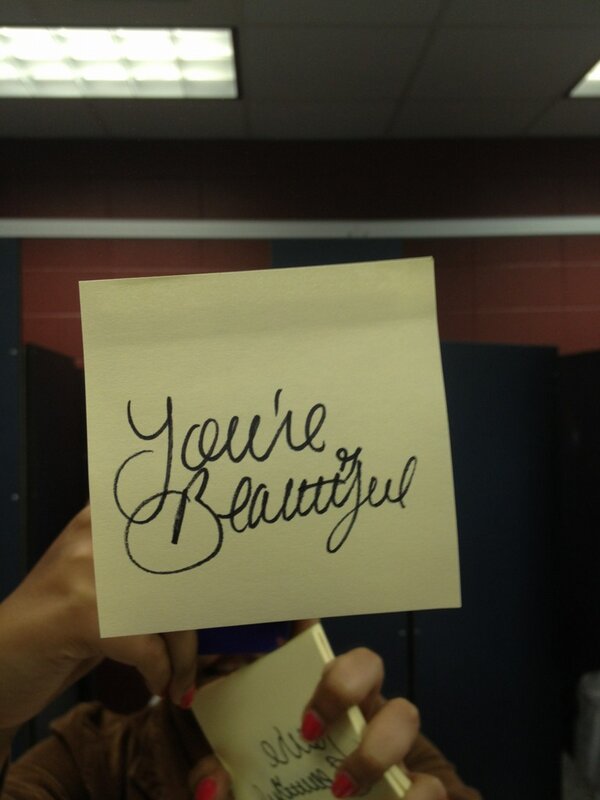 You're
Beautiful